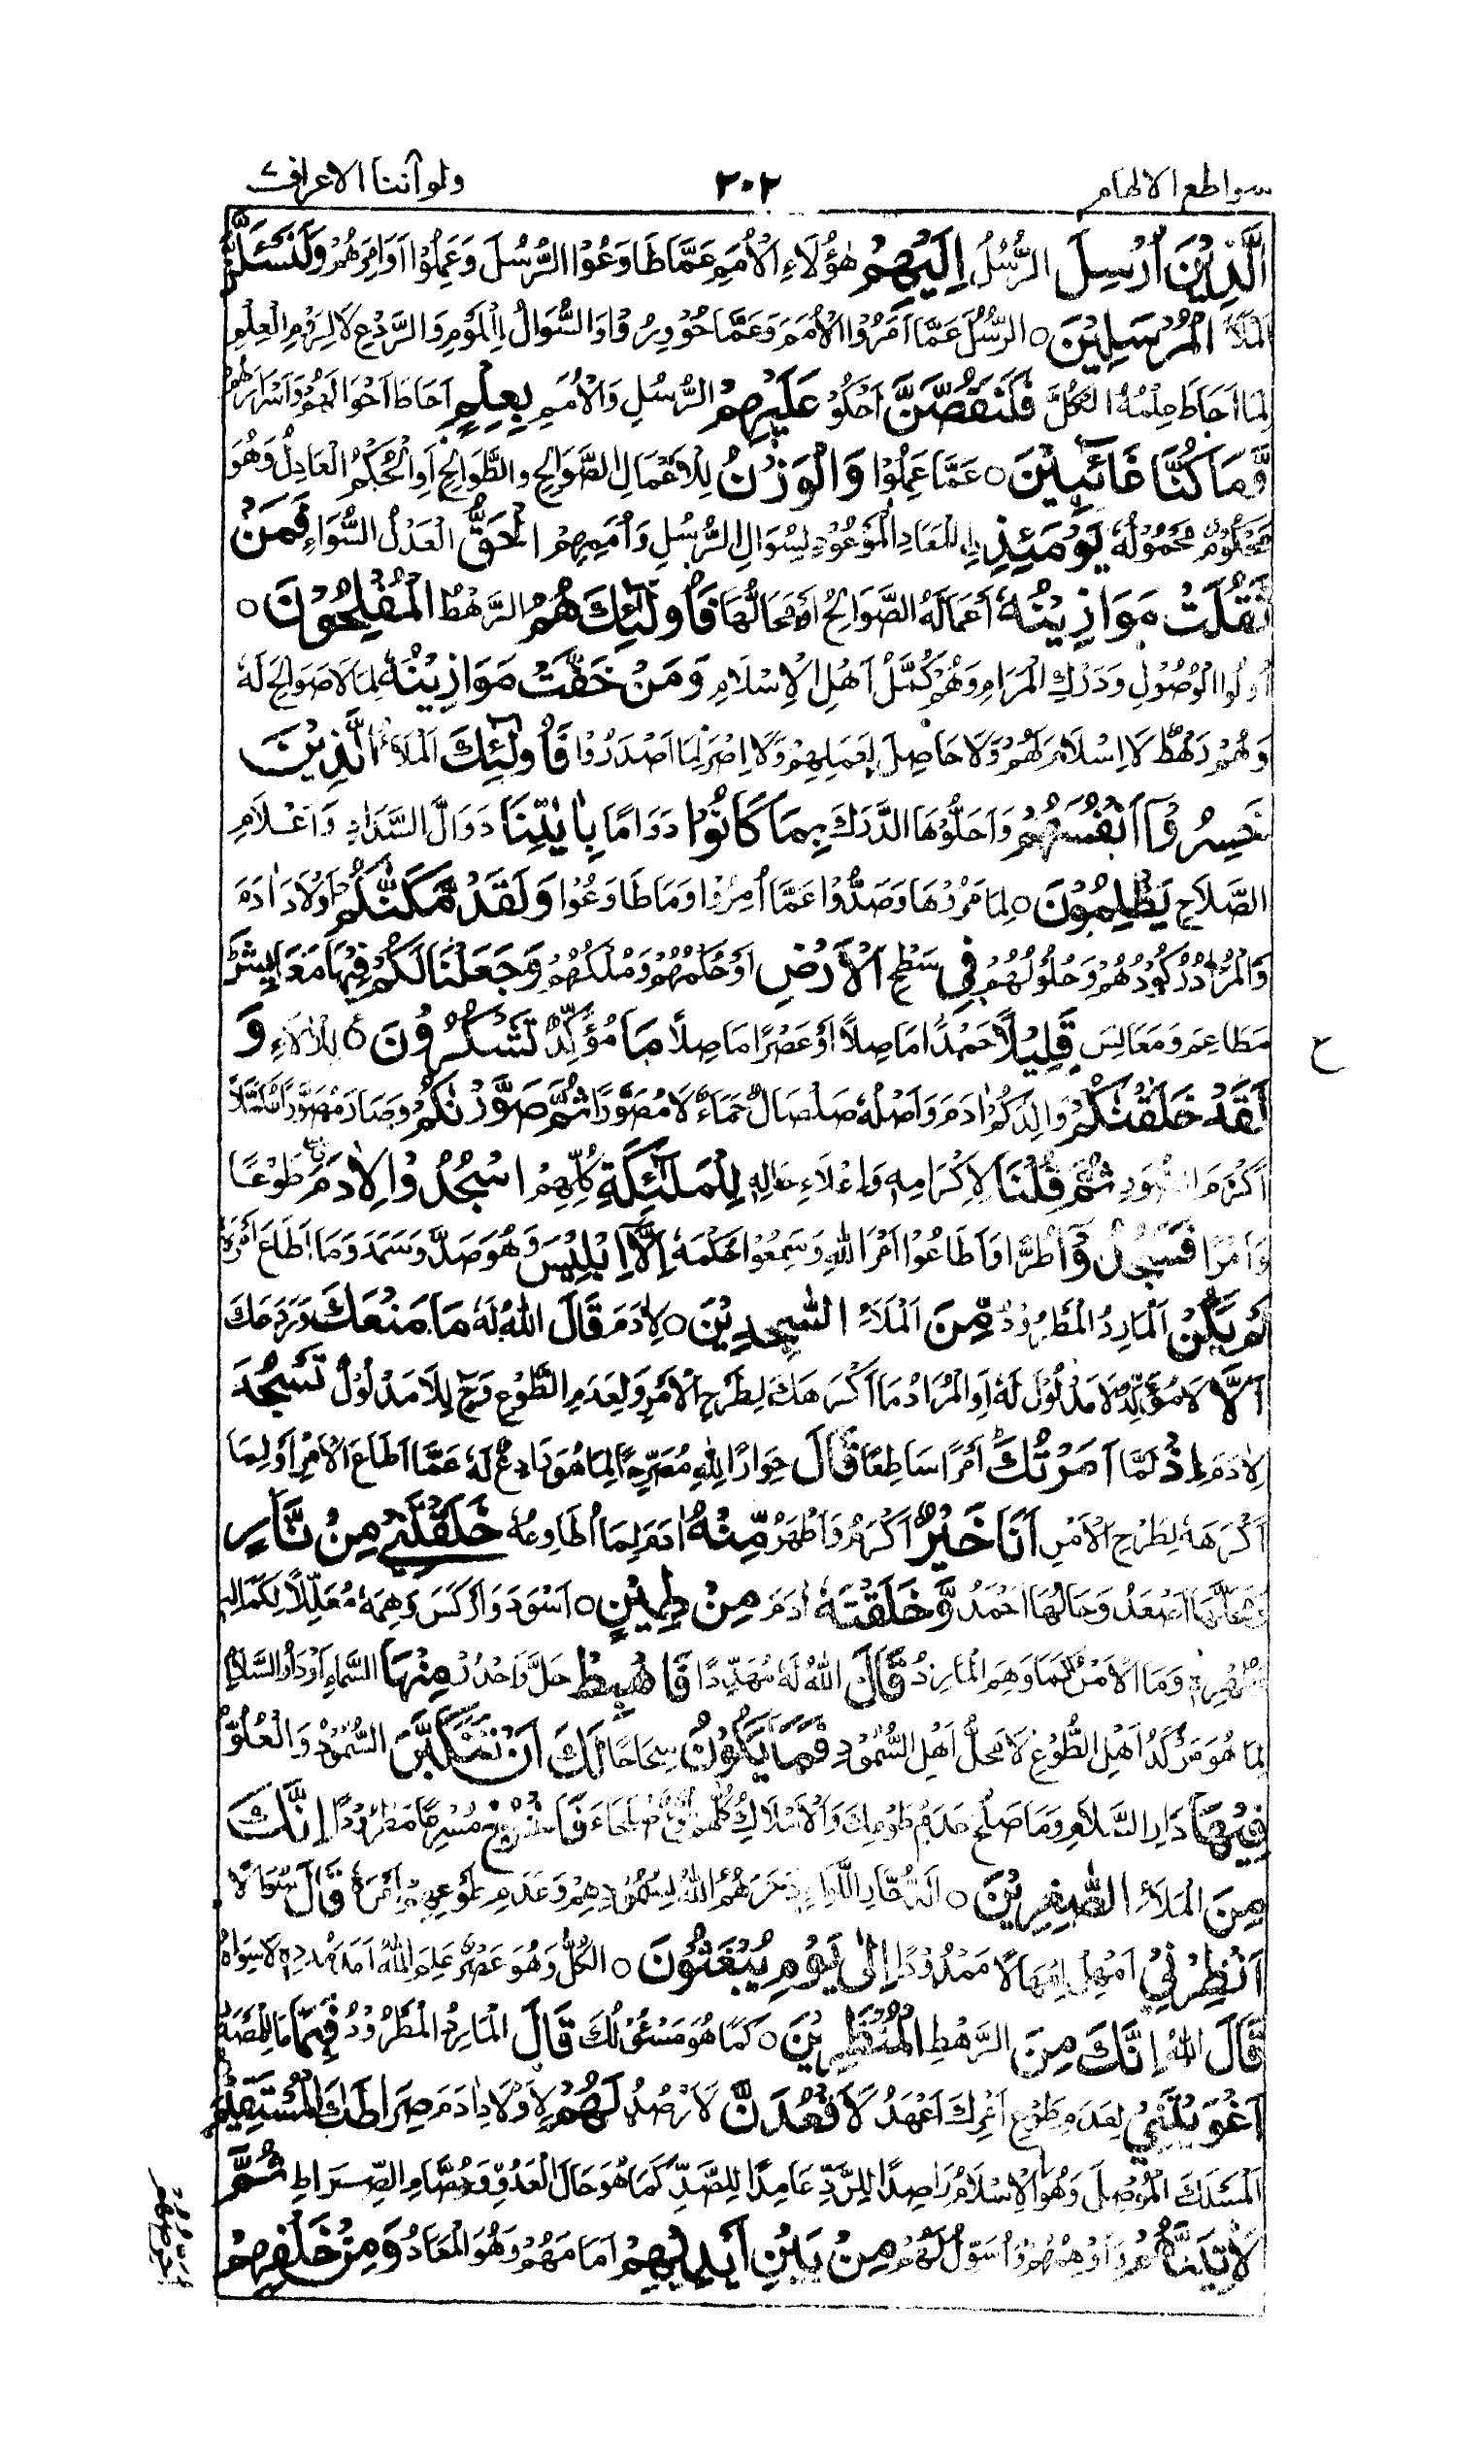 سواطع الالهام ٢٠٢ ولو أننا الاعراف
الَّذِيْنَ اُرْسِلَ الرُّسُلُ اِلَيْهِمْ هٰؤُلَاءِ الْاُمَمِ عَمَّا طَاوَعُوا الرُّسُلَ وَعَمِلُوْا اَوَامِرَهُمْ وَلَنَسْئَلَنَّ
اَلْمَلَأَ الْمُرْسَلِيْنَ ○ الرُّسُلَ عَمَّا اَمَرُوْا الْاُمَمَ وَعَمَّا حُوْوِرُوْا وَالسُّوَالُ لِلَّوْمِ وَالرَّدْعِ لَا لِرَوْمِ الْعِلْمِ
لِمَا اَحَاطَ عِلْمُهُ الْكُلَّ فَلَنَقُصَّنَّ اَحْكُوْ عَلَيْهِمْ الرُّسُلِ وَالْاُمَمِ بِعِلْمٍ اَحَاطَ اَحْوَالَهُمْ وَاَسْرَارَهُمْ
وَّمَا كُنَّا غَائِبِيْنَ ○ عَمَّا عَمِلُوْا وَالْوَزْنُ لِلْاَعْمَالِ الصَّوَالِحِ وَالطَّوَالِحِ اَوِ الْحُكْمُ الْعَادِلُ وَهُوَ
مَحْكُوْمٌ مَحْمُوْلُهٗ يَوْمَئِذٍ اِلْمَعَادِ الْمَوْعُوْدِ لِسُوَالِ الرُّسُلِ وَاُمَمِهِمْ الْحَقُّ الْعَدْلُ السَّوَاءُ فَمَنْ
ثَقُلَتْ مَوَازِيْنُهٗ اَعْمَالُهُ الصَّوَالِحُ اَوْ مَحَالُّهَا فَاُولٰئِكَ هُمُ الرَّهْطُ الْمُفْلِحُوْنَ ○
اُولُوا الْوُصُوْلِ وَدَرْكِ الْمَرَامِ وَهُمْ كُمَّلُ اَهْلِ الْاِسْلَامِ وَمَنْ خَفَّتْ مَوَازِيْنُهٗ لِمَا لَا صَوَالِحَ لَهٗ
وَهُمْ رَهْطٌ لَا اِسْلَامَ لَهُمْ وَلَا حَاصِلَ لِعَمَلِهِمْ وَلَا اِصْرَ لِمَا اَصْدَرُوْا فَاُولٰئِكَ الْمَلَأُ الَّذِيْنَ
خَسِرُوْٓا اَنْفُسَهُمْ وَاَحَلُّوْهَا الدَّرَكَ بِمَا كَانُوْا دَوَامًا بِاٰيٰتِنَا دَوَالِّ السَّدَادِ وَاَعْلَامِ
الصَّلَاحِ يَظْلِمُوْنَ ○ لِمَا مَرَدُوْهَا وَصَدُّوْا عَمَّا اُمِرُوْا وَمَا طَاوَعُوْا وَلَقَدْ مَكَّنّٰكُمْ اَوْلَادَ اٰدَمَ
وَالْمُرَادُ رُكُوْدُهُمْ وَحُلُوْلُهُمْ فِي سَطْحِ الْاَرْضِ اَوْ حُكْمُهُمْ وَمُلْكُهُمْ وَجَعَلْنَا لَكُمْ فِيْهَا مَعَايِشَ
مَطَاعِمَ وَمَعَالِسَ قَلِيْلًا حَمْدًا مَاصِلًا اَوْ عَصْرًا مَاصِلًا مَا مُؤَكِّدٌ تَشْكُرُوْنَ ○ لِلْاٰلَاءِ وَ
لَقَدْ خَلَقْنٰكُمْ وَالِدَكُمْ اٰدَمَ وَاَصْلُهٗ صَلْصَالٌ حَمَاءٌ لَا مُصَوَّرًا ثُمَّ صَوَّرْنٰكُمْ وَصَارَ مُصَوَّرًا مُكَمَّلًا
اَكْرَمَ الصُّوَرِ ثُمَّ قُلْنَا لِاِكْرَامِهٖ وَاِعْلَاءِ حَالِهٖ لِلْمَلٰئِكَةِ كُلِّهِمْ اسْجُدُوْا لِاٰدَمَ طَوْعًا
وَاَمْرًا فَسَجَدُوْٓا طُرًّا وَاَطَاعُوْا اَمْرَ اللهِ وَسَمِعُوْا حُكْمَهٗ اِلَّا اِبْلِيْسَ وَهُوَ صَدَّ وَسَمَدَ وَمَا اَطَاعَ اَمْرَهٗ
لَمْ يَكُنْ الْمَارِدُ الْمَطْرُوْدُ مِّنَ الْمَلَأِ السّٰجِدِيْنَ ○ لِاٰدَمَ قَالَ اللهُ لَهٗ مَا مَنَعَكَ وَرَدَعَكَ
اَلَّا لَا مُؤَكِّدٌ لَا مَدْلُوْلَ لَهٗ اَوِ الْمُرَادُ مَا اَكْرَهَكَ لِطَرْحِ الْاَمْرِ وَلِعَدَمِ الطَّوْعِ وَحَ لِلَا مَدْلُوْلٌ تَسْجُدَ
لِاٰدَمَ اِذْ لَمَّا اَمَرْتُكَ اَمْرًا سَاطِعًا قَالَ حِوَارًا لِلّٰهِ مُصَرِّحًا لِمَا هُوَ رَادِعٌ لَهٗ عَمَّا اَطَاعَ الْاَمْرَ اَوْ لِمَا
اَكْرَهَهٗ لِطَرْحِ الْاَمْرِ اَنَا خَيْرٌ اَكْرَمُ وَاَطْهَرُ مِّنْهُ اٰدَمَ لِمَا اُطَاوِعُهٗ خَلَقْتَنِيْ مِنْ نَّارٍ
مَحَلُّهَا اَصْعَدُ وَحَالُهَا اَحْمَدُ وَّخَلَقْتَهٗ اٰدَمَ مِنْ طِيْنٍ ○ اَسْوَدَ وَاَرْكَسَ وَهِمَهٗ مُعَلِّلًا لِكَمَالِهٖ
وَمَا الْاَمْرُ كَمَا وَهِمَ الْمَارِدُ قَالَ اللهُ لَهٗ مُهَدِّدًا فَاهْبِطْ حَلَّ وَاحْدُرْ مِنْهَا السَّمَاءِ اَوْ دَارِ السَّلَامِ
لِمَا هُوَ مَرْكَدُ اَهْلِ الطَّوْعِ لَا مَحَلُّ اَهْلِ السُّمُوْدِ فَمَا يَكُوْنُ سَحَاحًا لَكَ اَنْ تَتَكَبَّرَ السُّمُوْدُ وَالْعُلُوُّ
فِيْهَا دَارِ السَّلَامِ وَمَا صَلُحَ عَدَمُ طَوْعِكَ وَالْاَمْلَاكُ كُلُّهُمْ صُلَحَاءُ فَاخْرُجْ مُسْرِعًا مَطْرُوْدًا اِنَّكَ
مِنَ الْمَلَأِ الصّٰغِرِيْنَ ○ دَحَرَهُمُ اللهُ لِسُمُوْدِهِمْ وَعَدَمِ طَوْعِهِمْ اَمْرَهٗ قَالَ سُوَالًا
اَنْظِرْنِيْ اَمْهِلْ اِمْهَالًا مَمْدُوْدًا اِلٰى يَوْمِ يُبْعَثُوْنَ ○ الْكُلُّ وَهُوَ عَصْرٌ عَلِمَ اللهُ اَمَدَ لَا سِوَاهُ
قَالَ اللهُ اِنَّكَ مِنَ الرَّهْطِ الْمُنْظَرِيْنَ ○ كَمَا هُوَ مَسْئُوْلُكَ قَالَ الْمَارِدُ الْمَطْرُوْدُ فَبِمَا مَا لِلْمَصْدَرِ
اَغْوَيْتَنِيْ لِعَدَمِ طَوْعِ اَمْرِكَ اَعْهَدُ لَاَقْعُدَنَّ لَاَرْصُدُ لَهُمْ لِاَوْلَادِ اٰدَمَ صِرَاطَكَ الْمُسْتَقِيْمَ
الْمَسْلَكَ الْمُوْصِلَ وَهُوَ الْاِسْلَامُ رَاصِدًا لِلرَّدِّ عَامِدًا لِلصَّدِّ كَمَا هُوَ حَالُ الْعَدُوِّ الصِّرَاطِ ثُمَّ
لَاٰتِيَنَّهُمْ وَاُسَوِّلُ لَهُمْ مِنْ بَيْنِ اَيْدِيْهِمْ اَمَامَهُمْ وَهُوَ الْمَعَادُ وَمِنْ خَلْفِهِمْ
ح